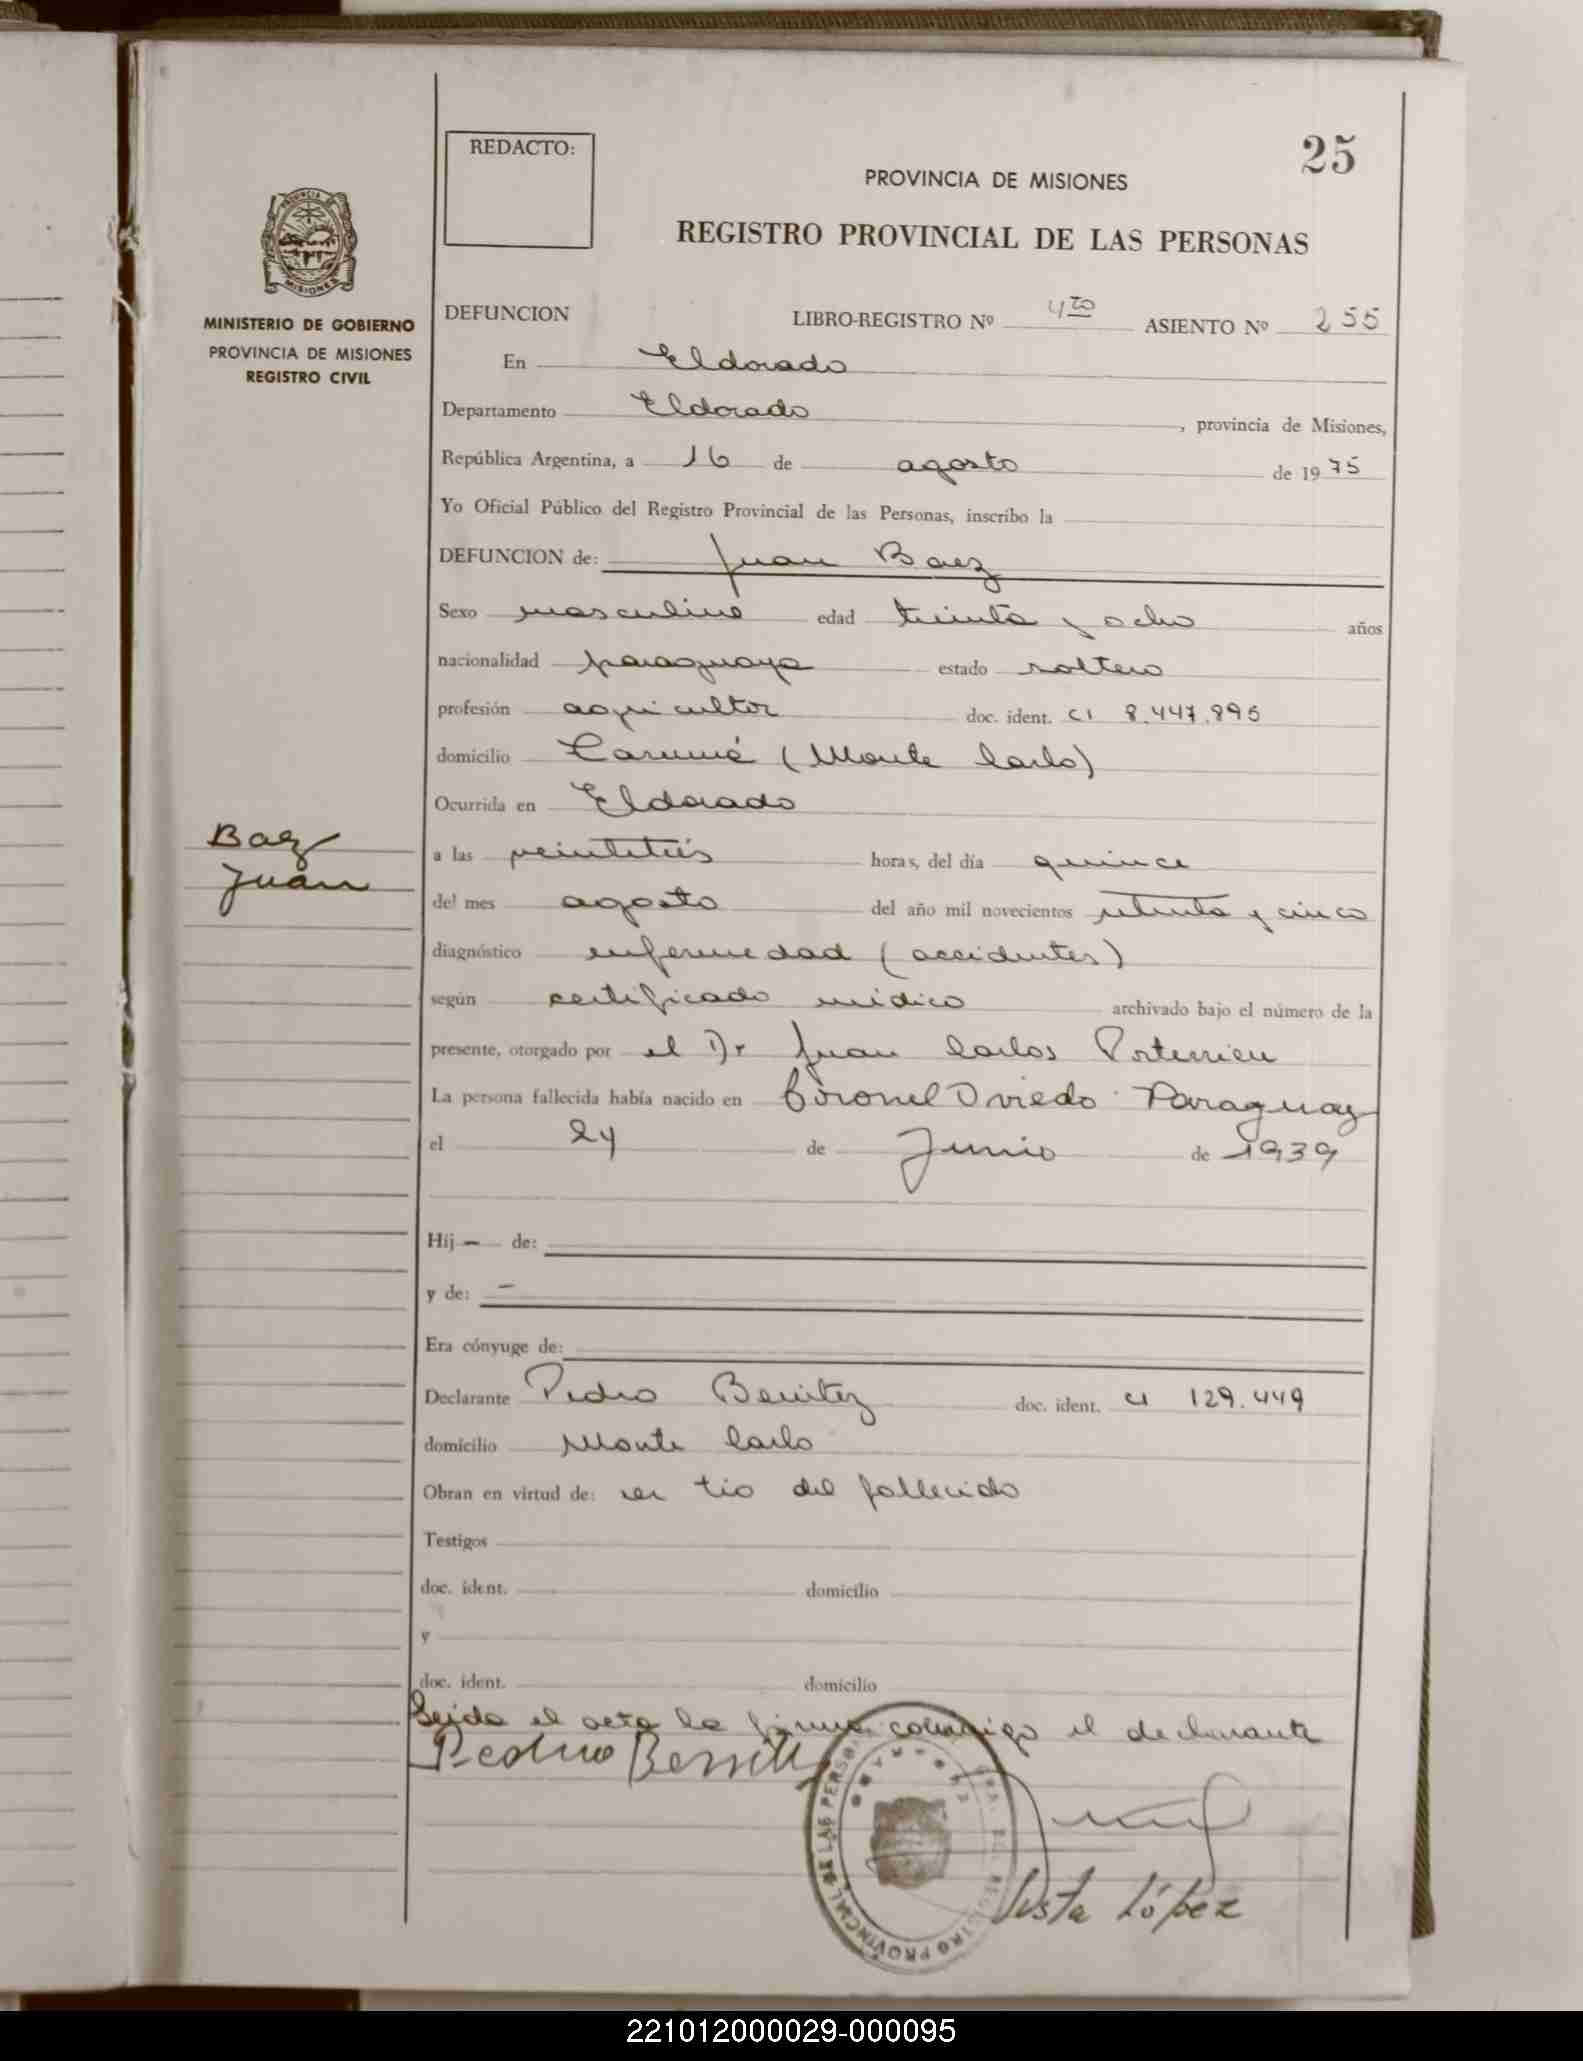 25
REDACTO:
PROVINCIA DE MISIONES
REGISTRO PROVINCIAL DE LAS PERSONAS
MINISTERIO DE GOBIERNO
PROVINCIA DE MISIONES
REGISTRO CIVIL
DEFUNCION LIBRO-REGISTRO Nº 4to ASIENTO Nº 255
En Eldorado
Departamento Eldorado, provincia de Misiones,
República Argentina, a 16 de agosto de 1975
Yo Oficial Público del Registro Provincial de las Personas, inscribo la
DEFUNCION de: Juan Baez
Sexo masculino edad treinta y ocho años
nacionalidad paraguaya estado soltero
profesión agricultor doc. ident. CI 8.447.895
domicilio (Monte Carlo)
Ocurrida en Eldorado
Baez
Juan
a las veintitrés horas, del día quince
del mes agosto del año mil novecientos setenta y cinco
diagnóstico enfermedad (accidentes)
según certificado médico archivado bajo el número de la
presente, otorgado por el Dr Juan Carlos
La persona fallecida había nacido en Coronel Oviedo Paraguay
el 24 de Junio de 1939
Hij— de:
y de: —
Era cónyuge de:
Declarante Pedro Benitez doc. ident. CI 129.449
domicilio Monte Carlo
Obran en virtud de: ser tio del fallecido
Testigos
doc. ident. domicilio
y
doc. ident. domicilio
Leida el acta la firma conmigo el declarante
Pedro
López
221012000029-000095